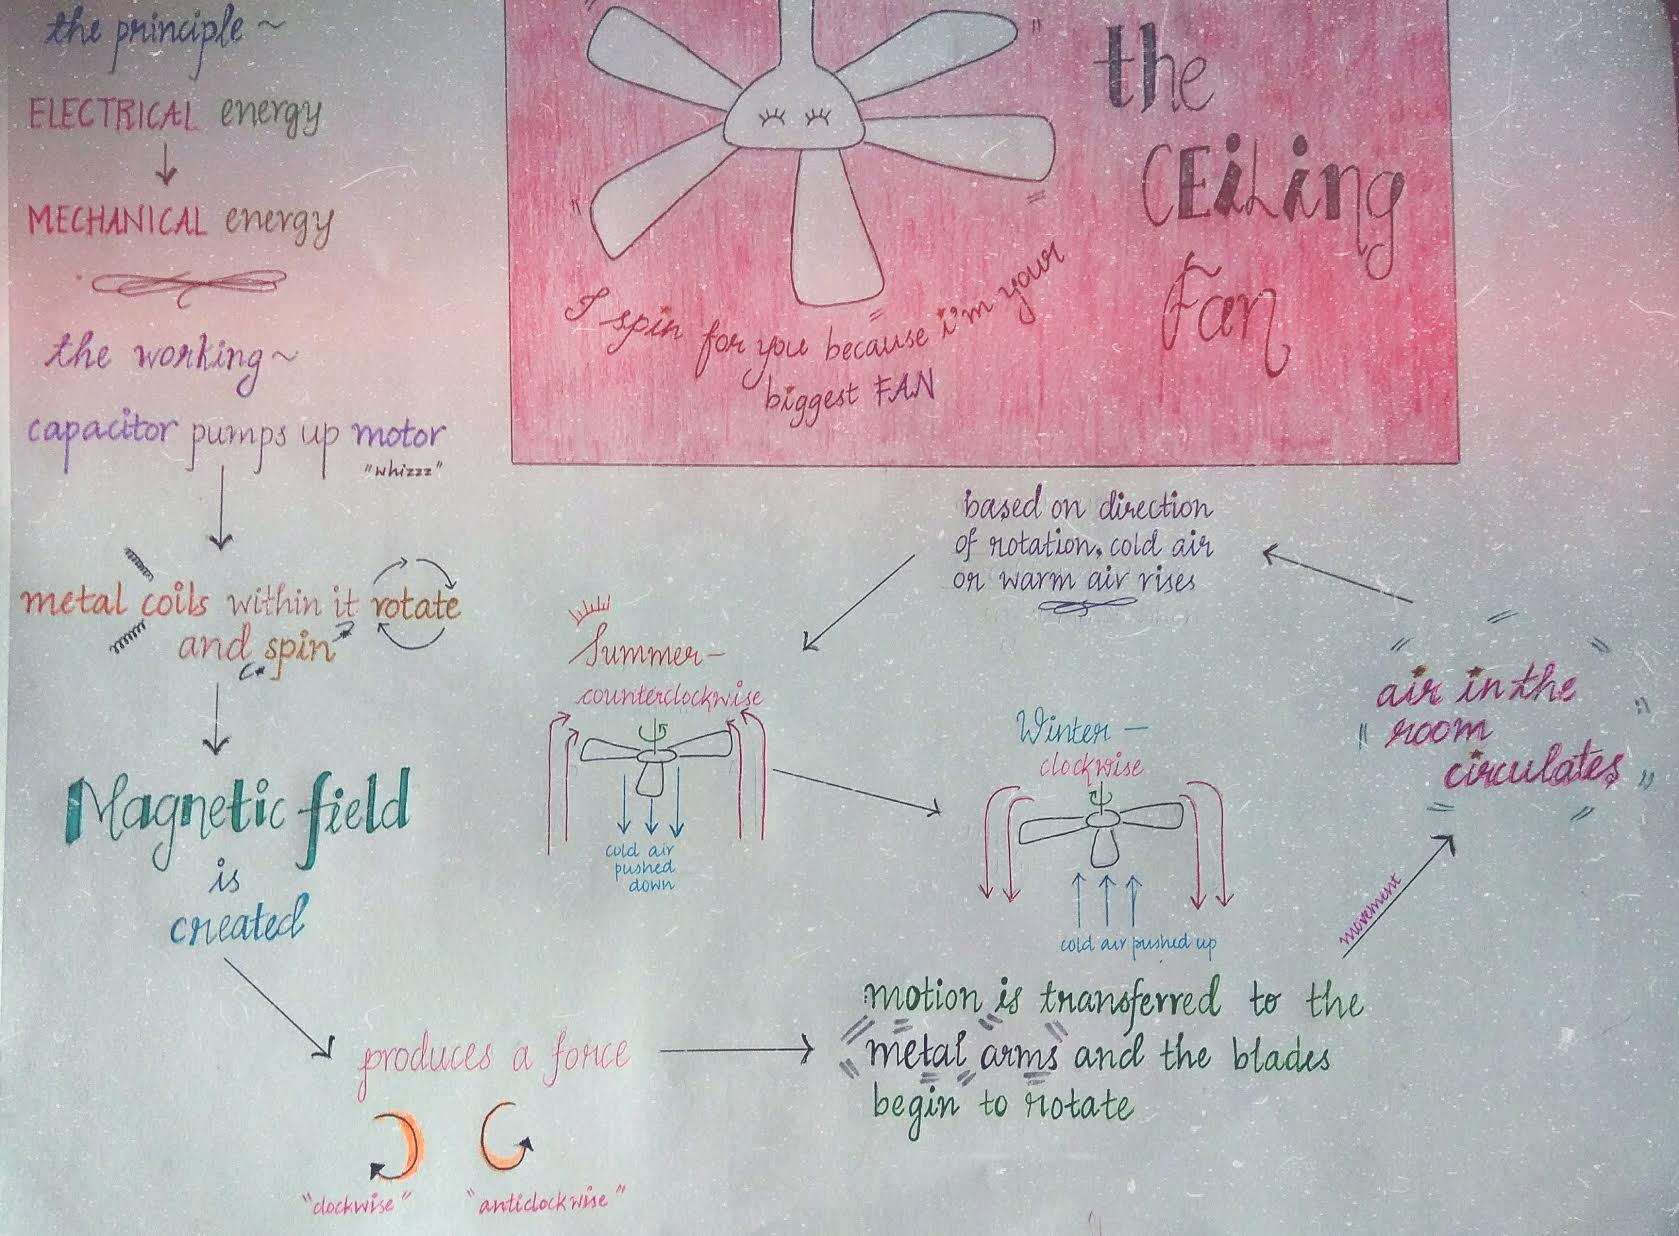 the principle ~
ELECTRICAL energy
MECHANICAL energy
the working ~
capacitor pumps up motor
"whizzz"
metal coils within it rotate
and spin
Magnetic field
is
created
produces a force
"clockwise"
"anticlockwise"
motion is transferred to the
metal arms and the blades
begin to rotate
movement
air in the
room
circulates
based on direction
of rotation, cold air
or warm air rises
Summer -
counterclockwise
cold air
pushed
down
Winter -
clockwise
cold air pushed up
the
CEiLing
Fan
I spin for you because i'm your
biggest FAN